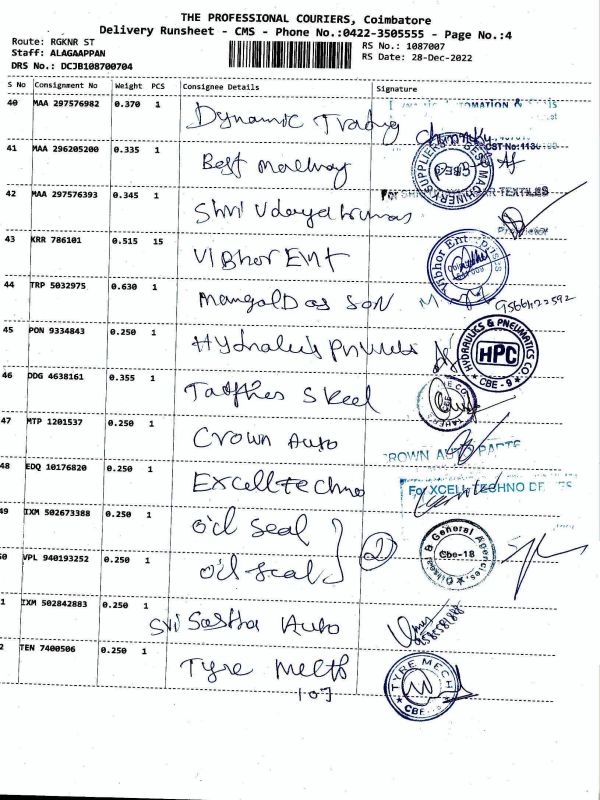 THE PROFESSIONAL COURIERS, Coimbatore
Delivery Runsheet - CMS - Phone No.:0422-3505555 - Page No.:4
Route: RGKNR ST
Staff: ALAGAAPPAN
DRS No.: DCJB108700704
RS No.: 1087007
RS Date: 28-Dec-2022
S No Consignment No Weight PCS Consignee Details Signature
40 MAA 297576982 0.370 1 Dynamic Trading
41 MAA 296205200 0.335 1 Best
CST No:
MACHINERY SUPPLIERS
42 MAA 297576393 0.345 1 Shri Udayakumar
TEXTILES
43 KRR 786101 0.515 15 Vibhor Ent
Vibhor Ent
44 TRP 5032975 0.630 1 Mangal Das Son
9566422592
45 PON 9334843 0.250 1
HYDRAULICS & PNEUMATICS CO
HPC
CBE - 9
46 DDG 4638161 0.355 1
47 MTP 1201537 0.250 1 Crown Auto
CROWN AUTO PARTS
48 EDQ 10176820 0.250 1 Excelltechno
For XCELL TECHNO
49 IXM 502673388 0.250 1 oil seal
2
& General Agencies
Cbe-18
0 VPL 940193252 0.250 1 oil seal
1 IXM 502842883 0.250 1 Sri Sastha Auto
2 TEN 7400506 0.250 1 Tyre Mech
107
TYRE MECH
CBE